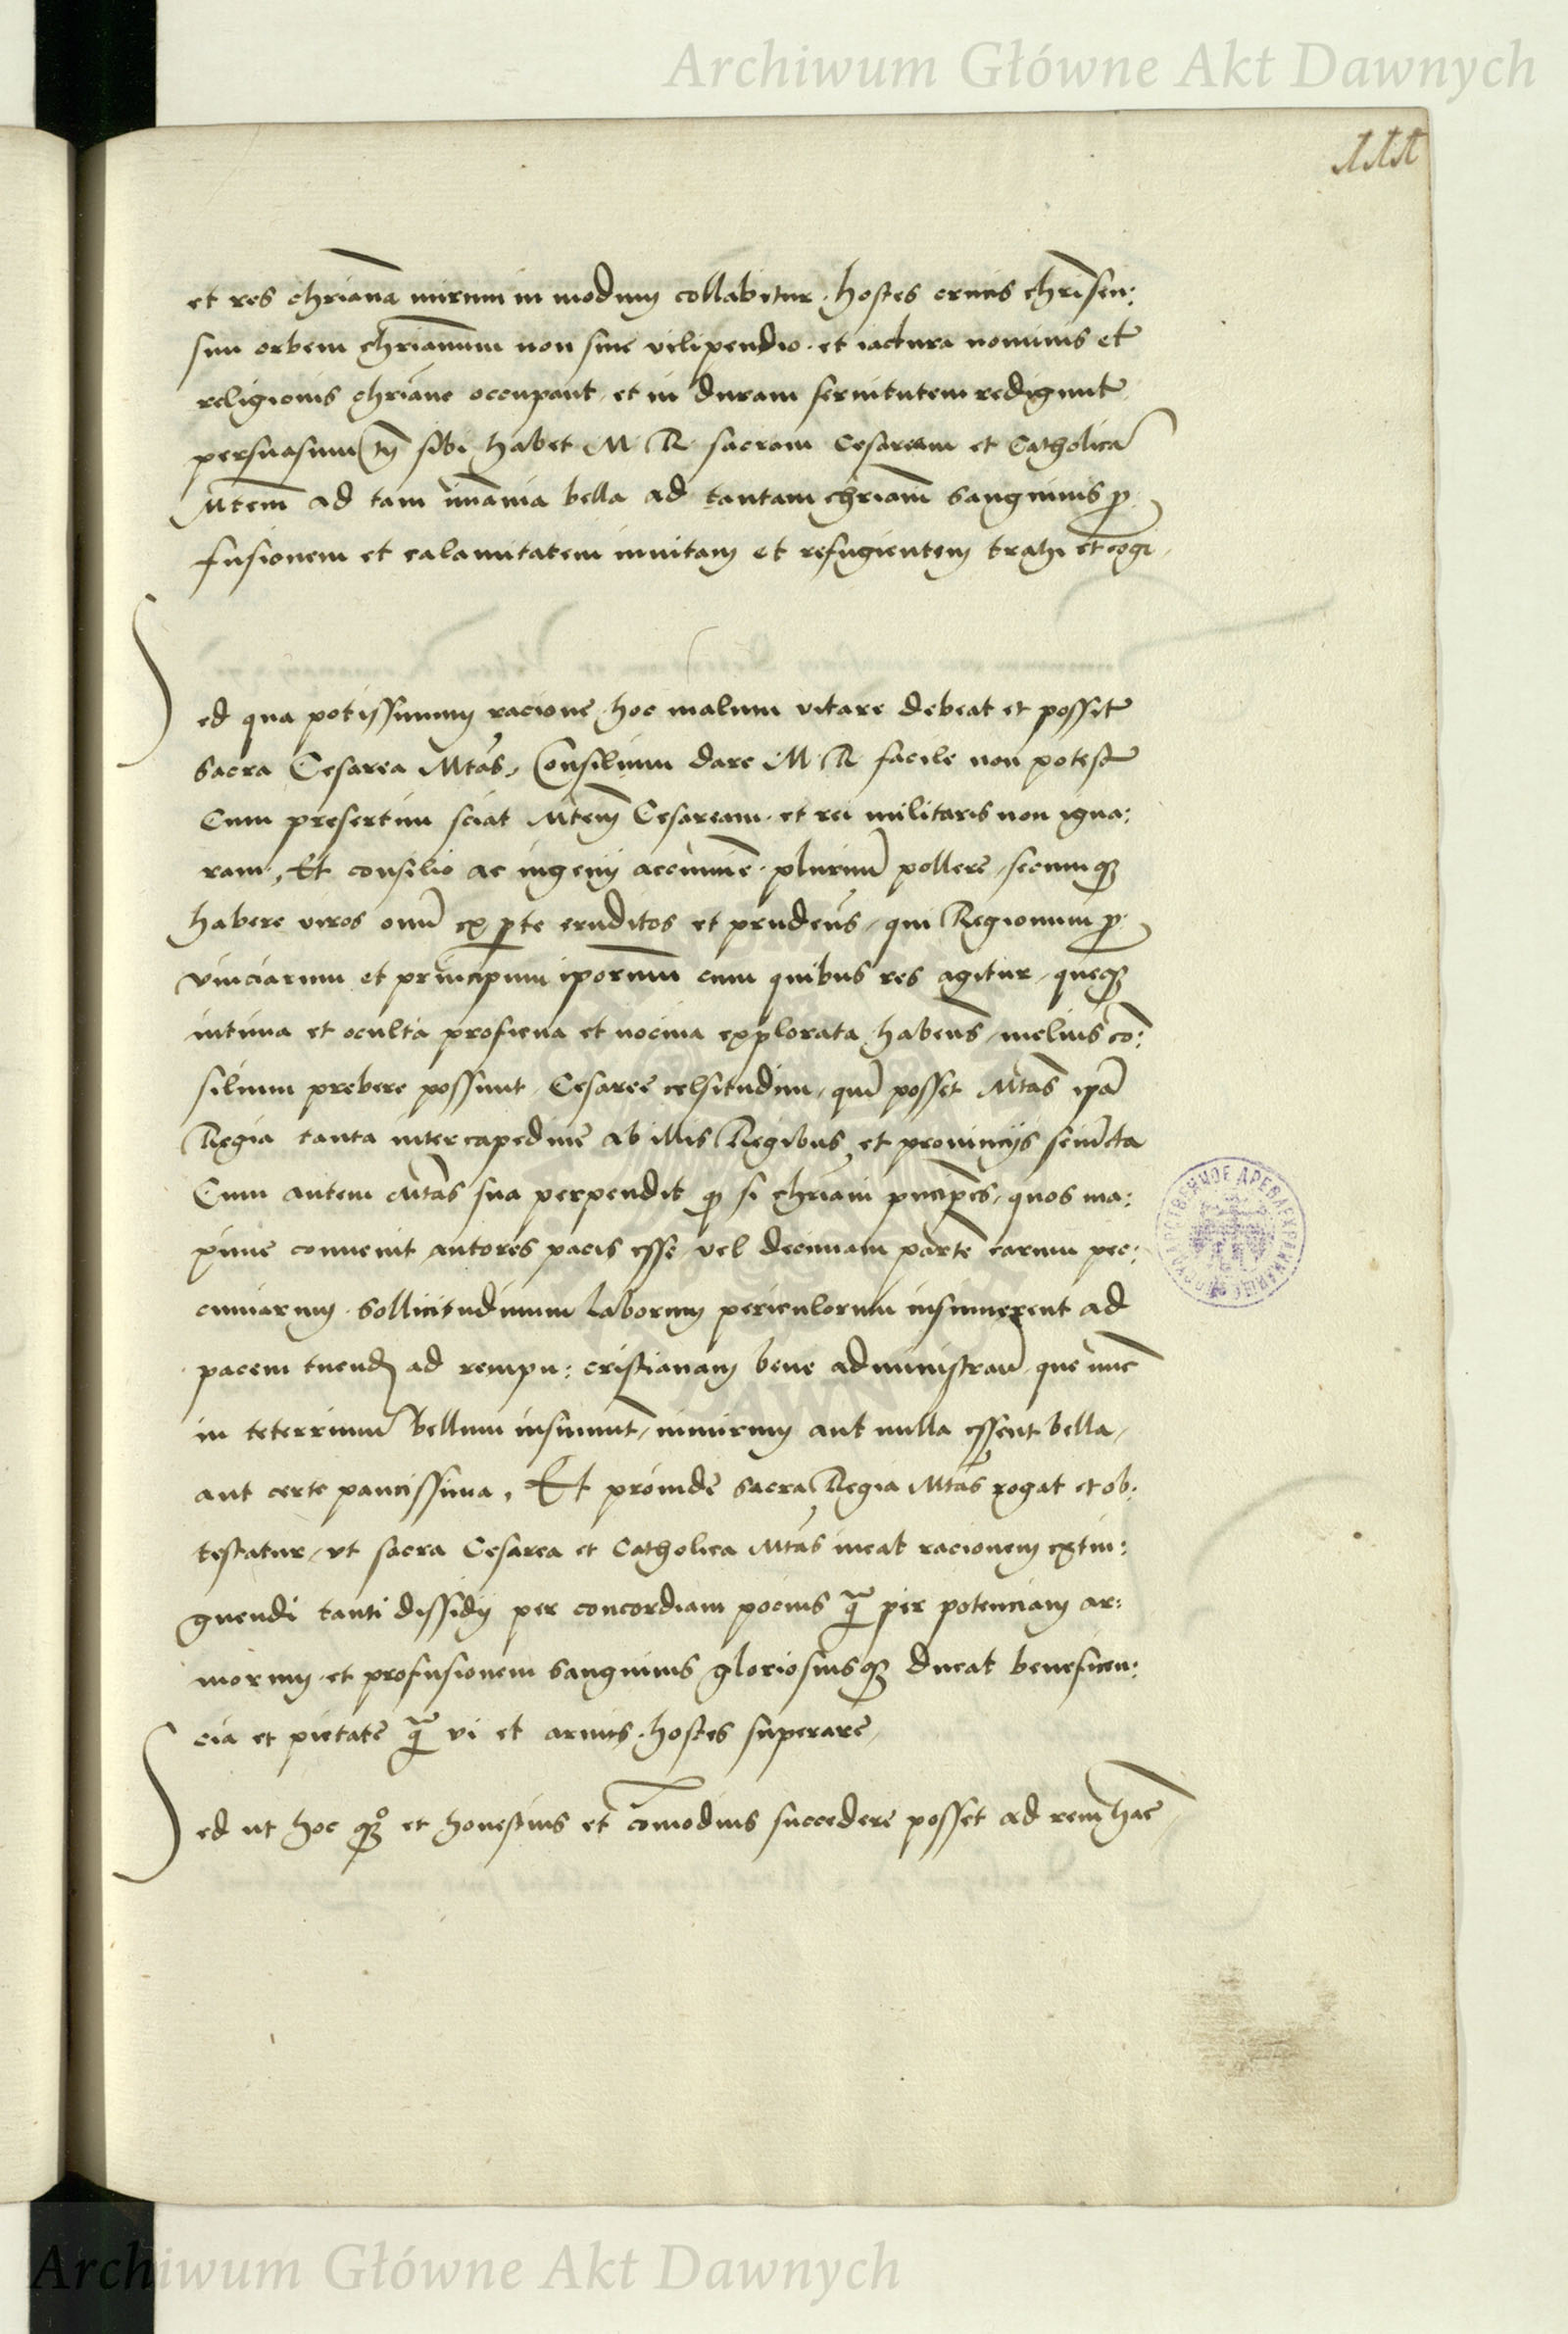 Archiwum Główne Akt Dawnych
111
et res chriana mirum in modum collabitur. hostes crucis chri sen:
sim orbem chrianum non sine vilipendio et iactura nominis et
religionis chriane occupant, et in duram servitutem redigunt,
persuasum tn sibi habet M. R. sacram Cesaream et Catholica
Mtem ad tam imania bella ad tantam chriani sanguinis p
fusionem et calamitatem invitam et refugientem trahi et cogi,
Sed qua potissimum racione hoc malum vitare debeat et possit
sacra Cesarea Mtas, Consilium dare M. R. facile non potest
Cum presertim sciat Mtem Cesaream et rei militaris non igna:
ram, Et consilio ac ingenij accumine plurimu pollere, secumq
habere viros omni ex pte eruditos et prudens, qui Regionum p
vinciarum et principum iporum cum quibus res agitur, queq
intima et oculta proficua et nociva explorata habens, melius co:
silium prebere possunt Cesaree celsitudini, qua posset Mtas ipa
Regia tanta intercapedine ab illis Regibus et provincijs seiucta
Cum autem Mtas sua perpendit q si chriani pncipes, quos ma:
xime convenit autores pacis esse, vel decimam parte earum pec:
cuniarum sollicitudinum laborum periculorum insumerent ad
pacem tuend ad rempu: cristianam bene administran, que nuc
in teterrimu bellum insumunt, nimirum aut nulla essent bella,
aut certe paucissima, Et proinde sacra Regia Mtas rogat et ob:
testatur, vt sacra Cesarea et Catholica Mtas ineat racionem extin:
guendi tanti dissidij per concordiam pocius q per potenciam ar:
morum et profusionem sanguinis gloriosiusq ducat beneficen:
cia et pietate q vi et armis hostes superare,
Sed ut hoc qqo et honestius et comodius succedere posset ad rem hac
Archiwum Główne Akt Dawnych